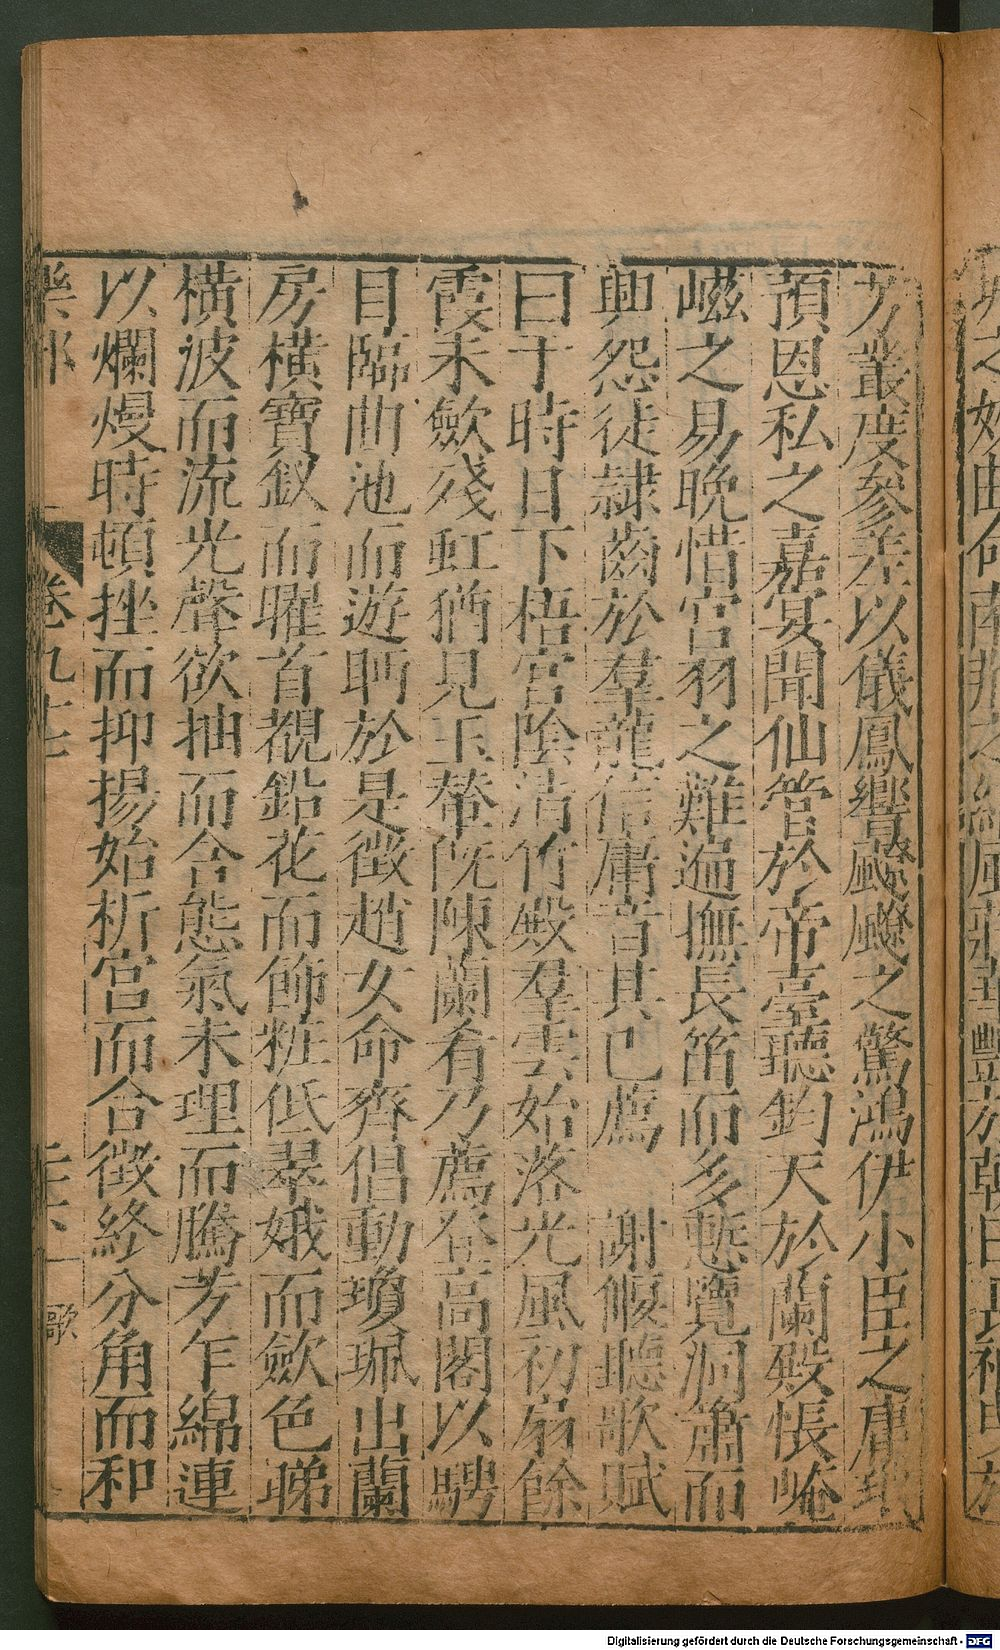 芳叢度參差以儀鳳響飂飉之驚鴻伊小臣之庸
預恩私之嘉宴聞仙管於帝臺聽鈞天於蘭殿悵崦
嵫之易晚惜宮羽之難遍撫長笛而多慙覽洞簫而
興怨徒隷齒於羣龍信庸音其已薦　謝偃聽歌賦
曰于時日下梧宮陰清竹殿羣雲始落光風初扇餘
霞未歛殘虹猶見玉輦既陳蘭肴乃薦登高閣以騁
目臨曲池而遊眄於是徵趙女命齊倡動瓊珮出蘭
房橫寶釵而曜首靚鉛花而飾粧低翠娥而歛色睇
橫波而流光聲欲抽而含態氣未理而騰芳乍綿連
以爛熳時頓挫而抑揚始折宮而合徴終分角而和
樂部
卷九十七
歌